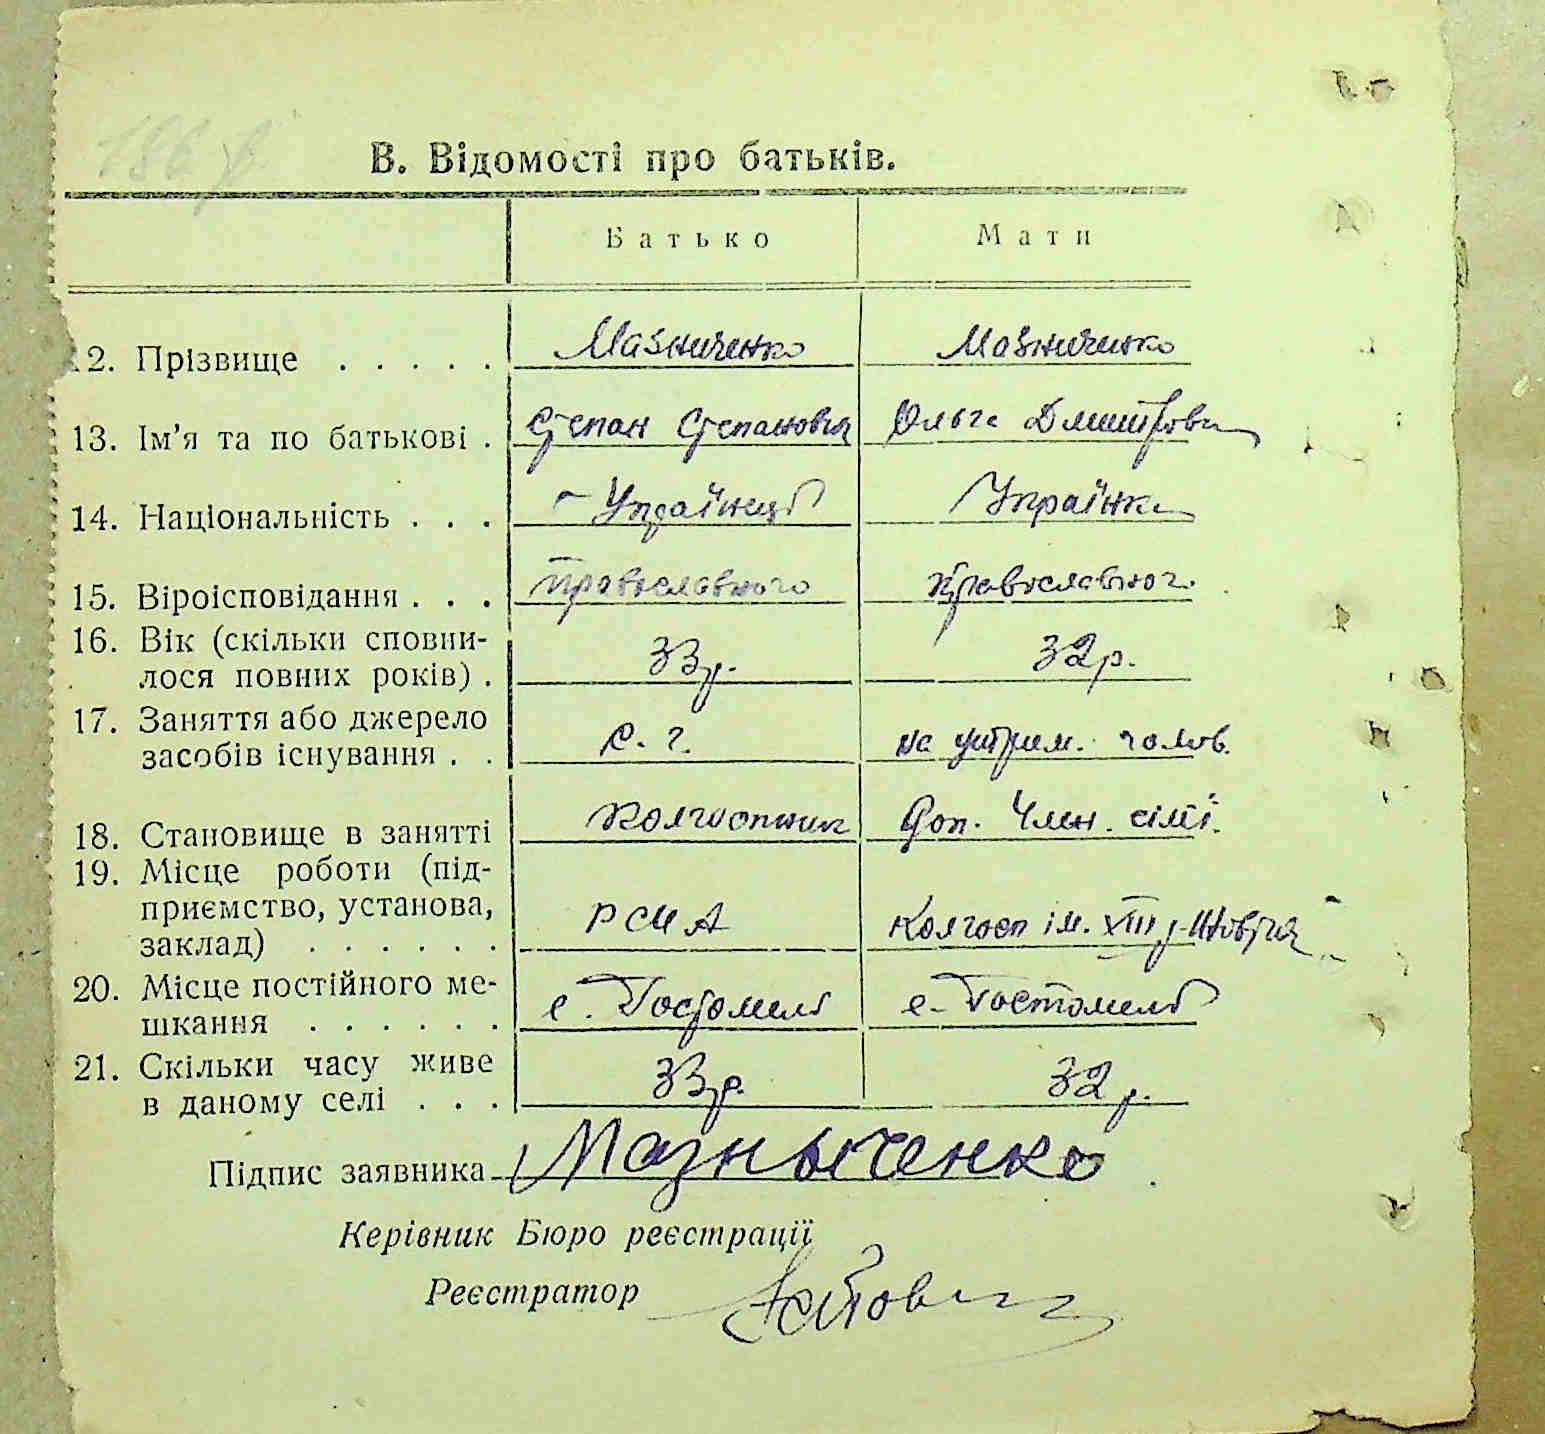 В. Відомості про батьків.
Батько Мати
12. Прізвище . . . . . Мазниченко Мазниченко
13. Ім'я та по батькові . Степан Степанович Ольга Дмитровн
14. Національність . . . Українець Українка
15. Віроісповідання . . . православного православног.
16. Вік (скільки сповни-
лося повних років) . 33 р. 32 р.
17. Заняття або джерело
засобів існування . . с. г. на утрим. чолов.
18. Становище в занятті Колгоспник Доп. Член. сімї.
19. Місце роботи (під-
приємство, установа,
заклад) . . . . . . РСЧА Колгосп ім. XVIII
20. Місце постійного ме-
шкання . . . . . . с. Гостомель с. Гостомель
21. Скільки часу живе
в даному селі . . . 33 р. 32 р.
Підпис заявника Мазныченко
Керівник Бюро реєстрації
Реєстратор